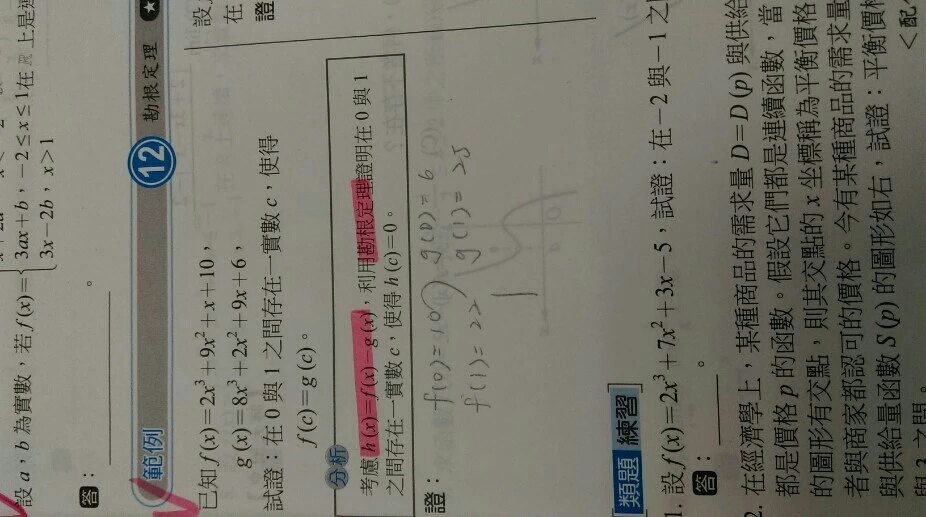 設 a，b 為實數，若 f(x)=
3ax+b，-2≤x≤1 在 R 上是連
3x-2b，x>1
答：
。
範例 12 勘根定理
已知 f(x)=2x³+9x²+x+10，
g(x)=8x³+2x²+9x+6，
試證：在 0 與 1 之間存在一實數 c，使得
f(c)=g(c)。
分析
考慮 h(x)=f(x)-g(x)，利用勘根定理證明在 0 與 1
之間存在一實數 c，使得 h(c)=0。
證：
f(0)=10 g(0)=6
f(1)=22 g(1)=25
設
在
證
類題 練習
1. 設 f(x)=2x³+7x²+3x-5，試證：在 -2 與 -1 之
答：
。
2. 在經濟學上，某種商品的需求量 D=D(p) 與供給
都是價格 p 的函數。假設它們都是連續函數，當
的圖形有交點，則其交點的 x 坐標稱為平衡價格
者與商家都認可的價格。今有某種商品的需求量
與供給量函數 S(p) 的圖形如右，試證：平衡價格
與 3 之間。
＜配合